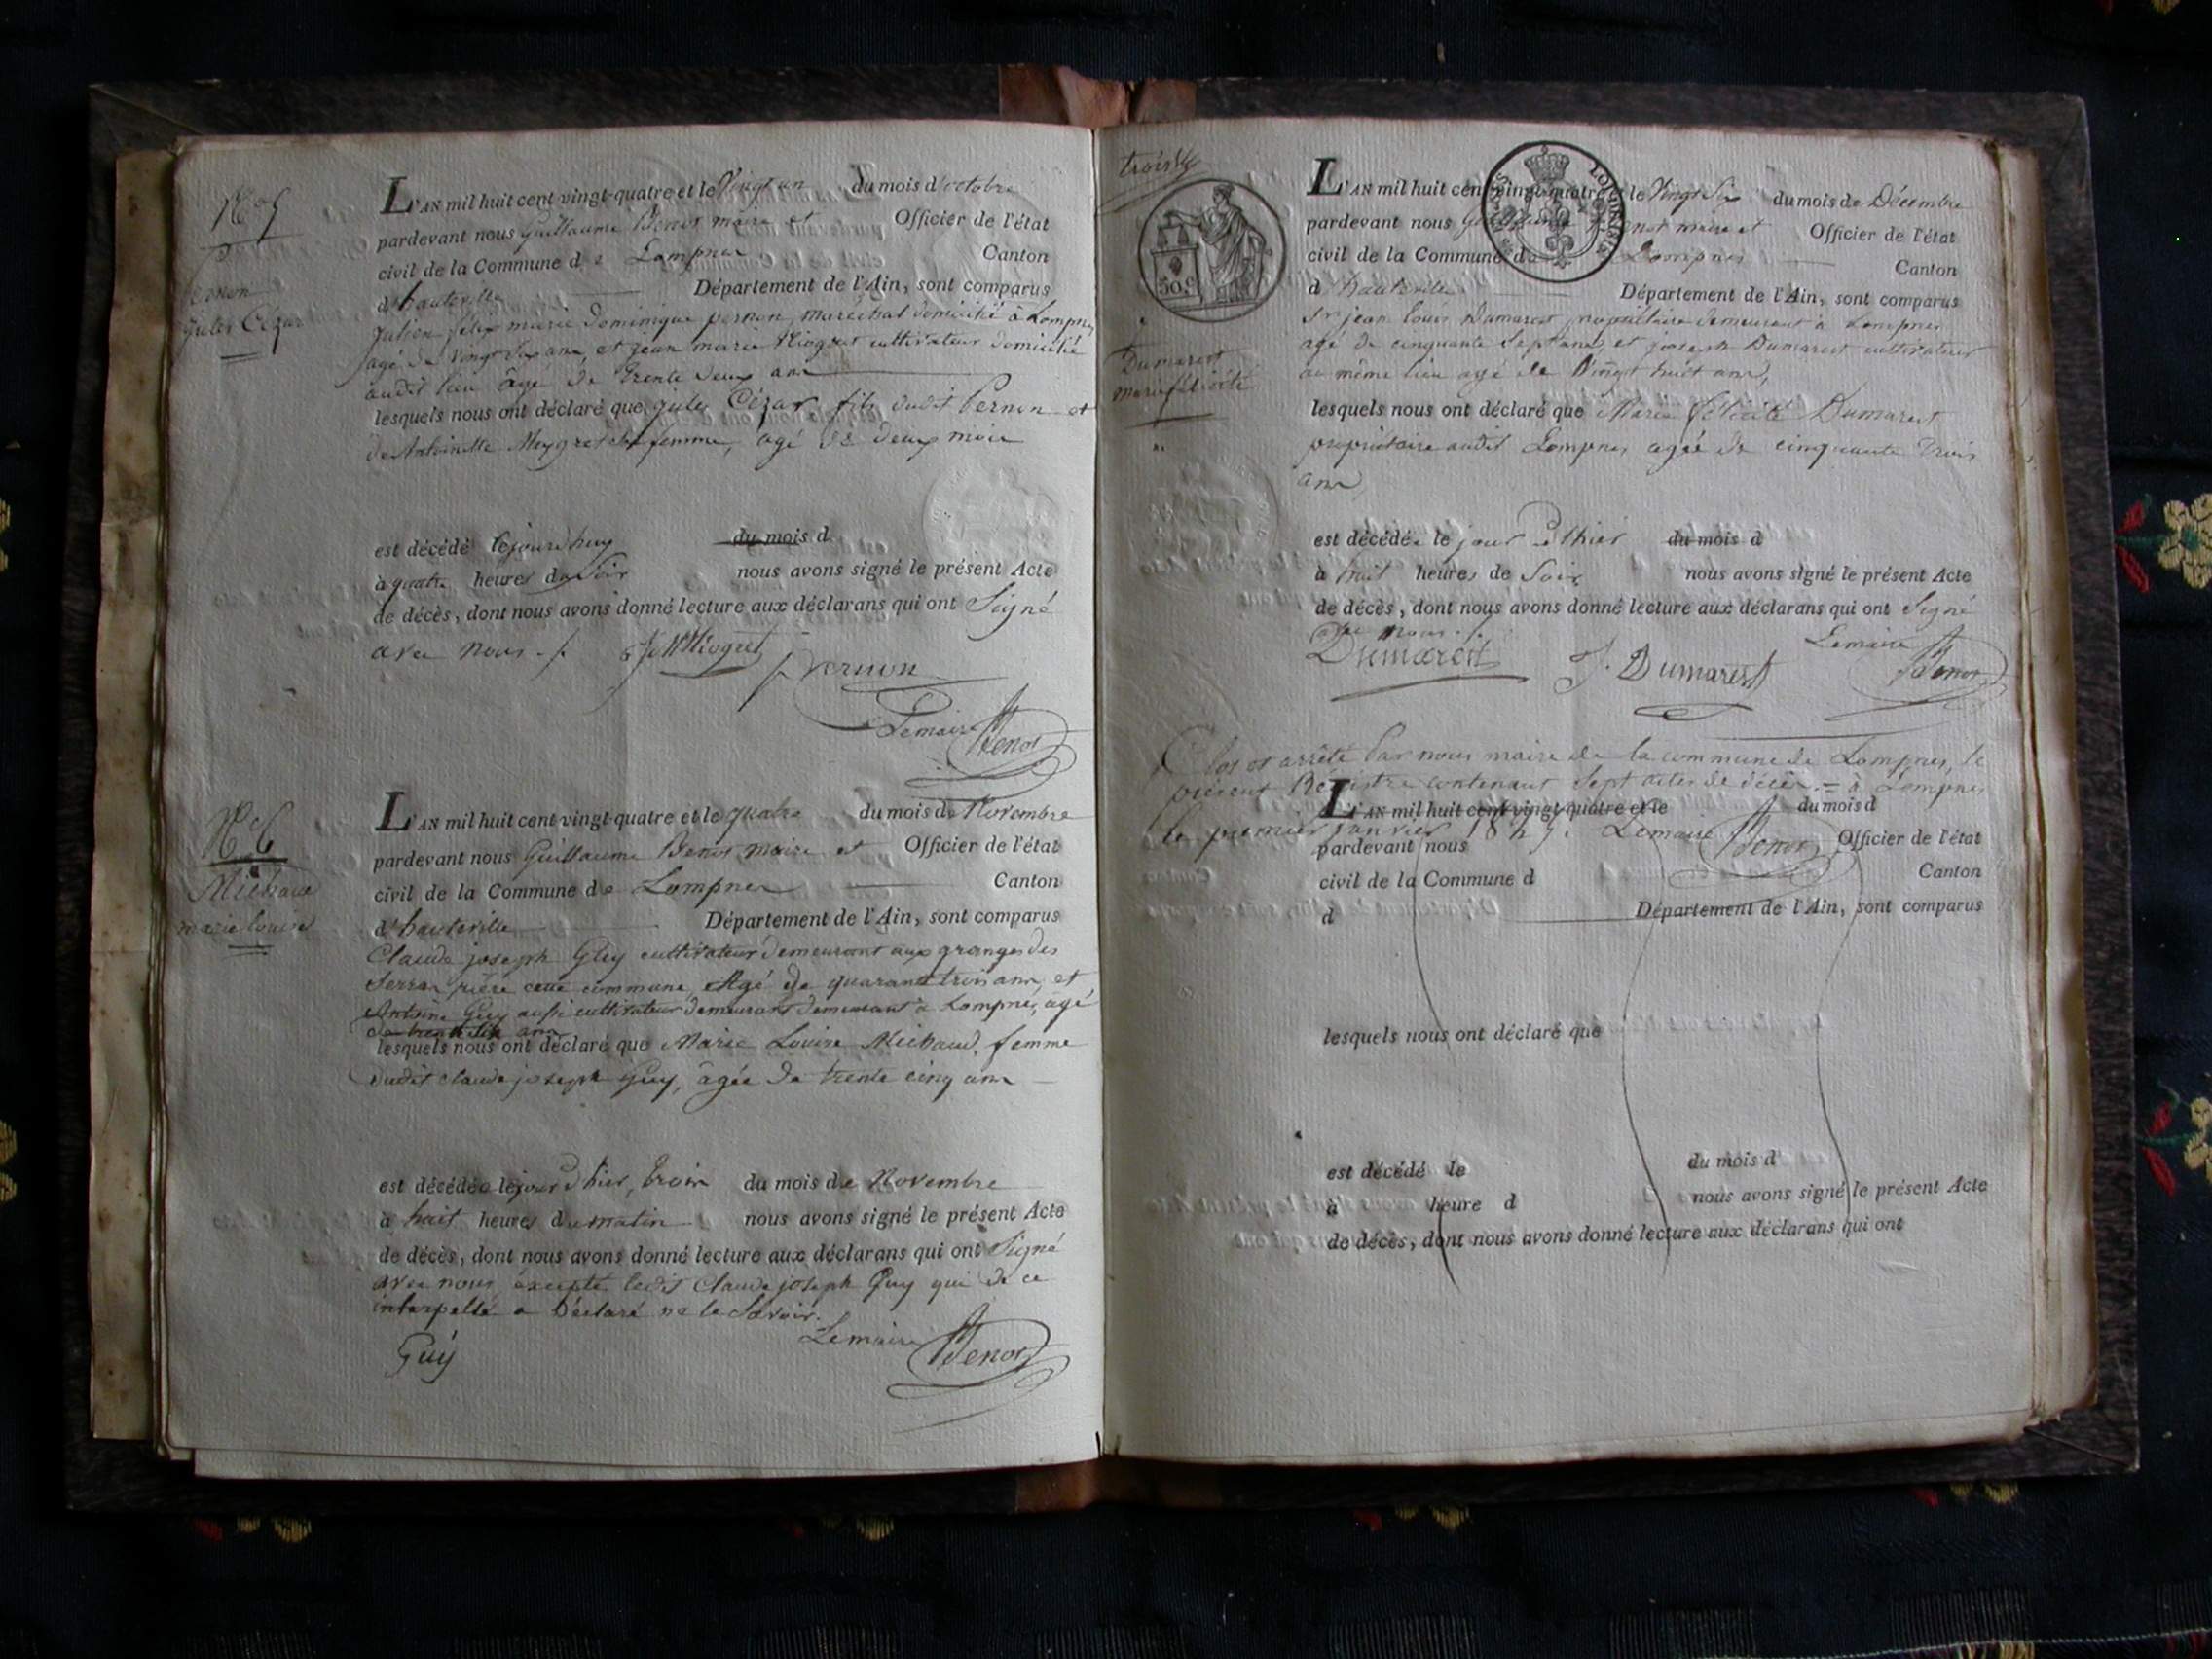 N° 5
Pernon
Jules Cézar
L'AN mil huit cent vingt-quatre et le Vingt un du mois d'octobre
pardevant nous Guillaume Benot maire et Officier de l'état
civil de la Commune de Lompnes Canton
d'hauteville Département de l'Ain, sont comparus
Julien félix marie dominique pernon, maréchal domicilié à Lompnes
agé de vingt ans, et jean marie cultivateur domicilié
audit lieu âgé de trente deux ans
lesquels nous ont déclaré que jules Cézar fils dudit Pernon et
de Antoinette sa femme, âgé de deux mois
est décédé le jourdhuy du mois d
à quatre heures du Soir nous avons signé le présent Acte
de décès, dont nous avons donné lecture aux déclarans qui ont Signé
avec nous ./.
pernon
Lemaire Benot
N° 6
Michaud
marie louise
L'AN mil huit cent vingt-quatre et le quatre du mois de Novembre
pardevant nous Guillaume Benot maire et Officier de l'état
civil de la Commune de Lompnes Canton
d'hauteville Département de l'Ain, sont comparus
Claude joseph Guy cultivateur demeurant aux granges des
Serran rière cette commune Agé de quarante trois ans, et
Antoine Guy aussi cultivateur demeurant demeurant à Lompnes, âgé
de ans
lesquels nous ont déclaré que Marie Louise Michaud, femme
dudit claude joseph Guy, âgée de trente cinq ans
est décédée le jour d'hier, trois du mois de Novembre
à huit heures du matin nous avons signé le présent Acte
de décès, dont nous avons donné lecture aux déclarans qui ont Signé
avec nous excepté ledit Claude joseph Guy qui de ce
interpellé a Déclaré ne le Savoir.
Guy Lemaire Benot
50 c
Dumarest
marie félicité
L'AN mil huit cent vingt-quatre et le Vingt Six du mois de Décembre
pardevant nous Guillaume Benot maire et Officier de l'état
civil de la Commune de Lompnes Canton
d'hauteville Département de l'Ain, sont comparus
Sr jean louis Dumarest propriétaire demeurant à Lompnes
agé de cinquante Sept ans et joseph Dumarest cultivateur
au même lieu agé de Vingt huit ans,
lesquels nous ont déclaré que Marie félicité Dumarest
propriétaire audit Lompnes agée de cinquante trois
ans
est décédée le jour d'hier du mois d
à huit heures de Soir nous avons signé le présent Acte
de décès, dont nous avons donné lecture aux déclarans qui ont Signé
avec nous ./. Lemaire
Dumarest J. Dumarest Benot
Clos et arrêté Par nous maire de la commune de Lompnes, le
présent Registre contenant Sept actes de décès = à Lompnes
L'AN mil huit cent vingt-quatre et le du mois d
le premier janvier Lemaire Benot
pardevant nous Officier de l'état
civil de la Commune d Canton
d Département de l'Ain, sont comparus
lesquels nous ont déclaré que
est décédé le du mois d
à heure d nous avons signé le présent Acte
de décès, dont nous avons donné lecture aux déclarans qui ont